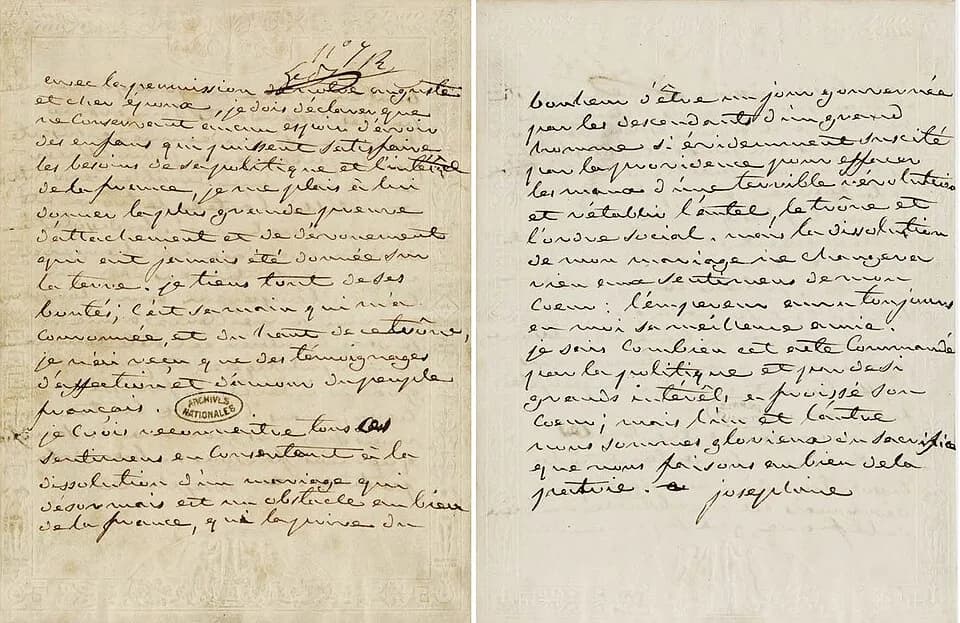 N° 7
avec la permission de notre auguste
et cher époux, je dois déclarer que
ne conservant aucun espoir d'avoir
des enfans qui puissent satisfaire
les besoins de sa politique et l'intérêt
de la france, je me plais à lui
donner la plus grande preuve
d'attachement et de dévouement
qui ait jamais été donnée sur
la terre. je tiens tout de ses
bontés; c'est sa main qui m'a
couronnée, et du haut de ce trône,
je n'ai reçu que des témoignages
d'affection et d'amour du peuple
français.
ARCHIVES
NATIONALES
je crois reconnaitre tous ces
sentimens en consentant à la
dissolution d'un mariage qui
désormais est un obstacle au bien
de la france, qui la prive du
bonheur d'être un jour gouvernée
par les descendants d'un grand
homme si évidemment suscité
par la providence pour effacer
les maux d'une terrible révolution
et rétablir l'autel, le trône et
l'ordre social. mais la dissolution
de mon mariage ne changera
rien aux sentimens de mon
coeur: l'empereur aura toujours
en moi sa meilleure amie.
je sais combien cet acte commandé
par la politique et par de si
grands intérêts a froissé son
coeur; mais l'un et l'autre
nous sommes glorieux du sacrifice
que nous faisons au bien de la
patrie.
joséphine